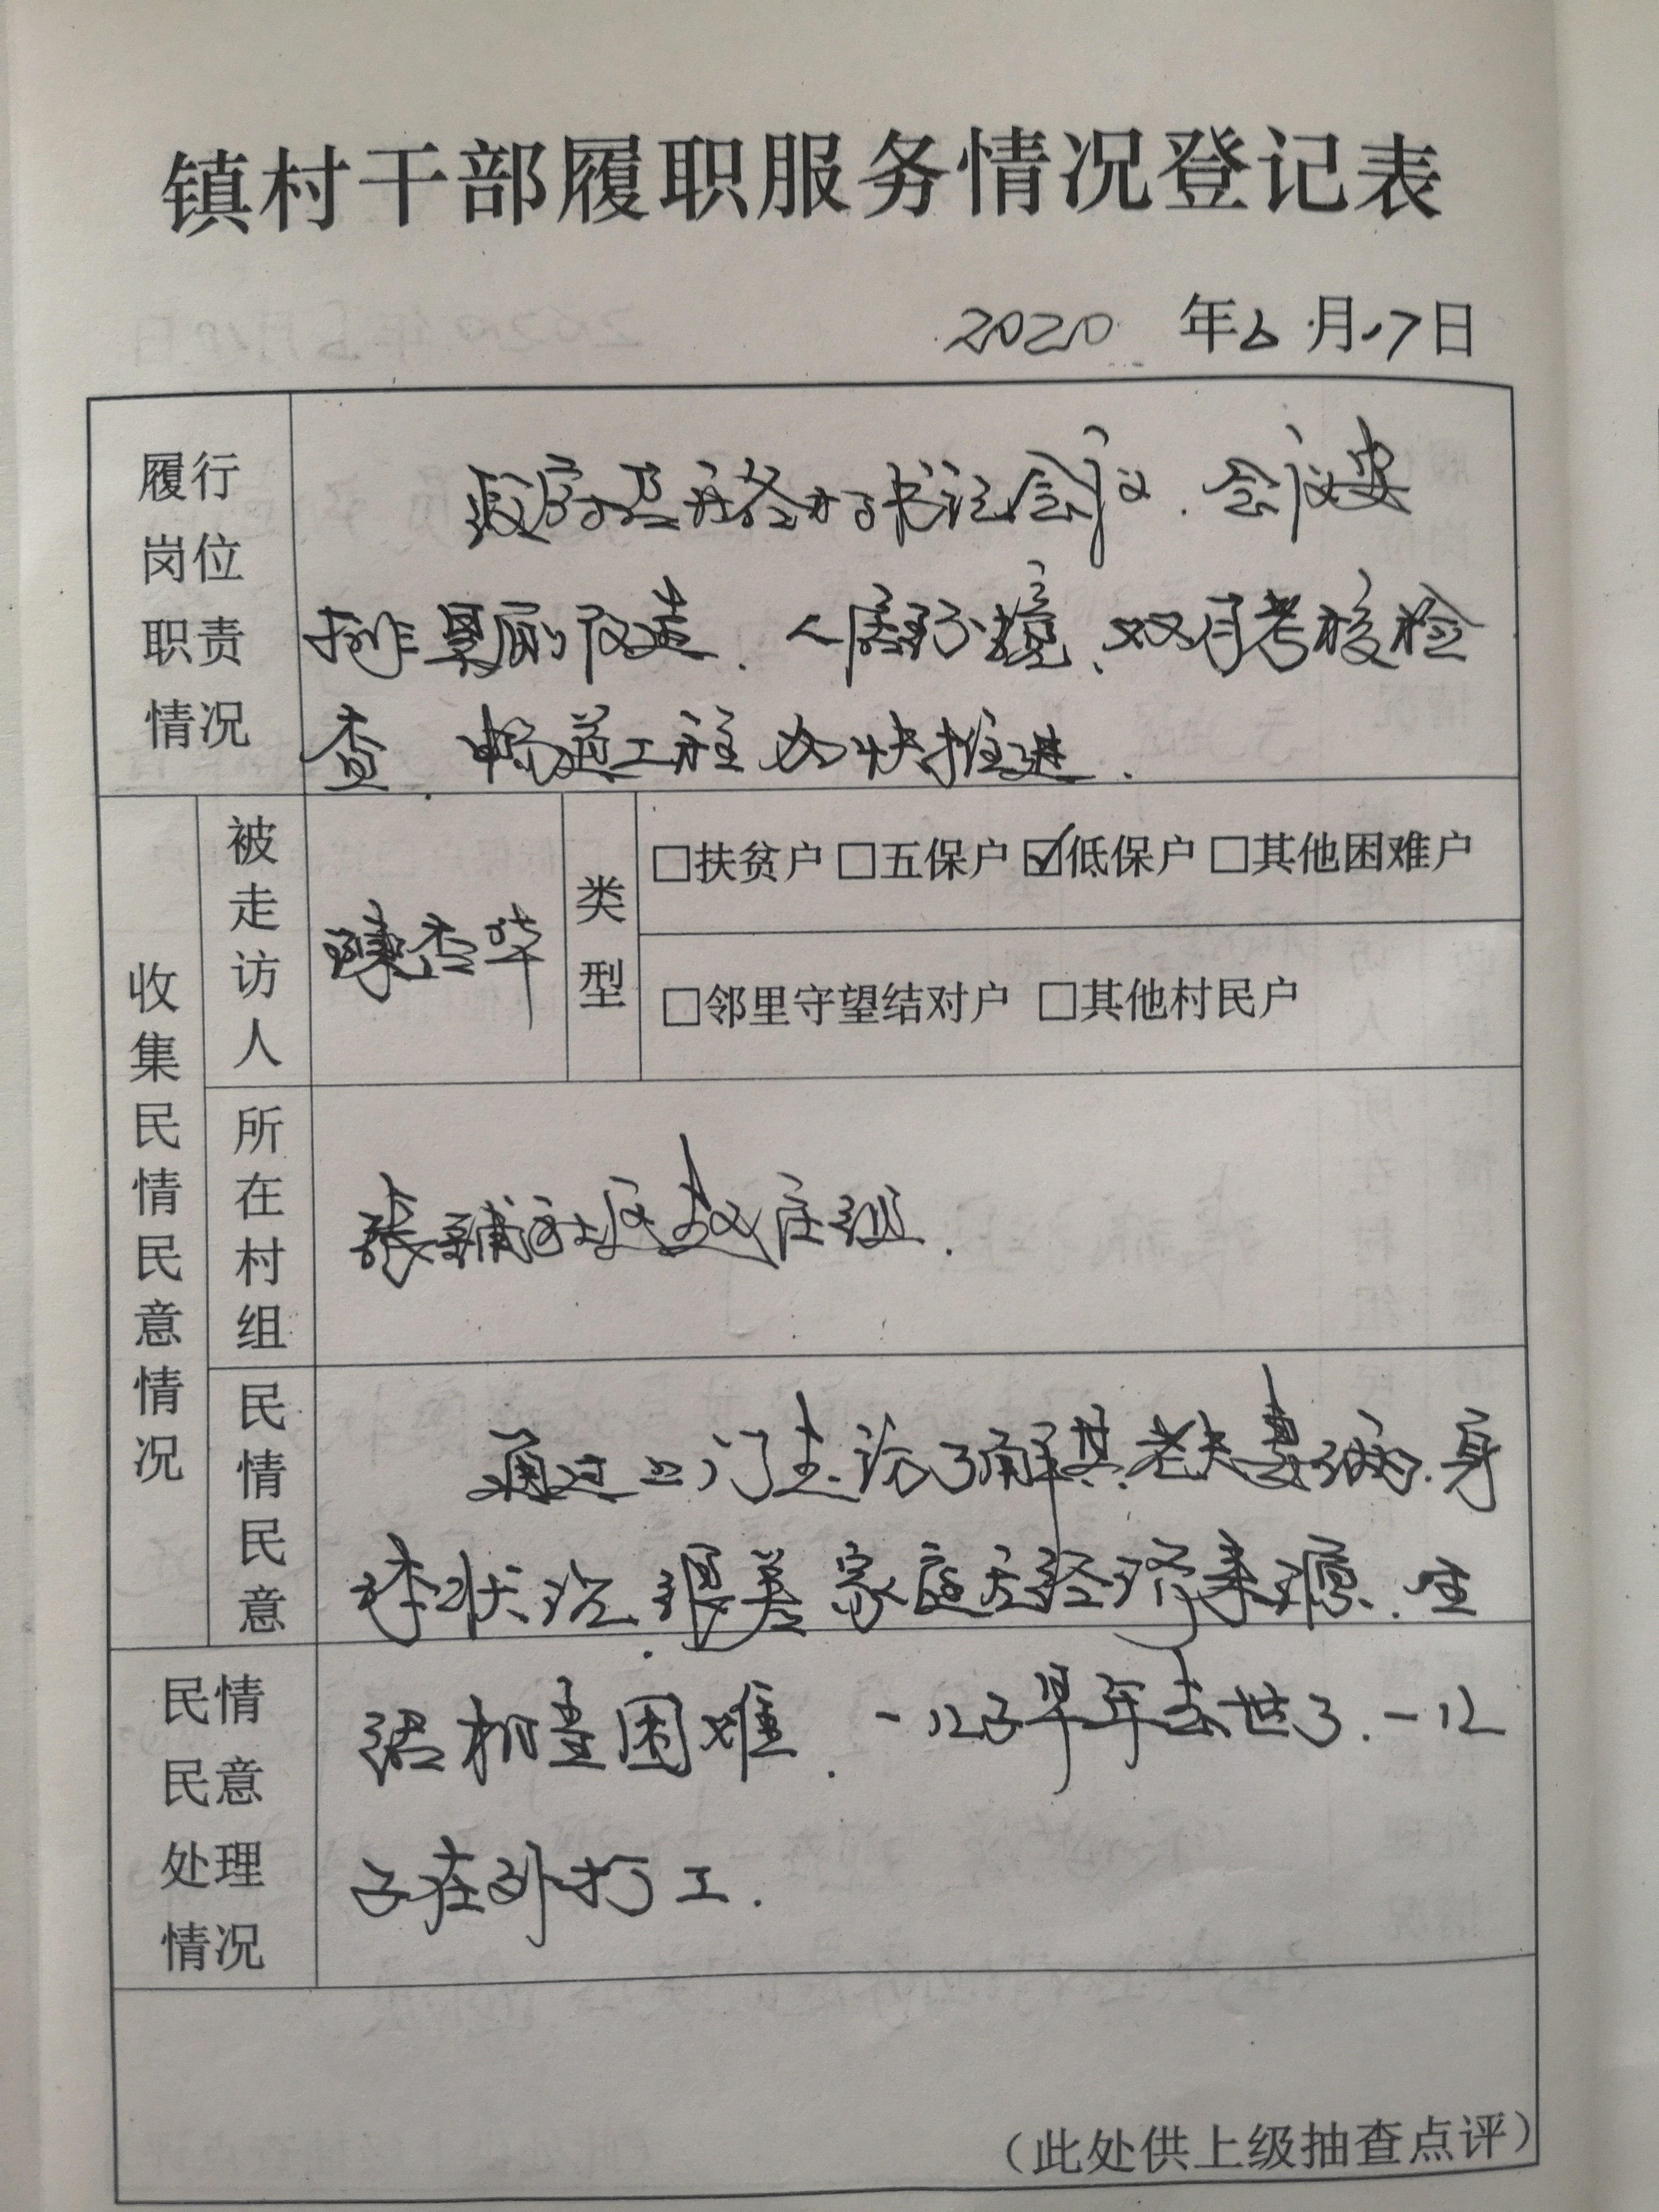 镇村干部履职服务情况登记表
2020 年6月17日
履行岗位职责情况
政府召开书记会议.会议安
排旱厕改造.人居环境、双月考核检
查.畅通工程加快推进.
收集民情民意情况
被走访人
陈杏华
类型
□扶贫户 □五保户 ☑低保户 □其他困难户
□邻里守望结对户 □其他村民户
所在村组
张铺社区赵庄组.
民情民意
通过上门走访了解其老夫妻多病.身
体状况很差家庭无经济来源.生
民情民意处理情况
活相当困难.一儿子早年去世了.一儿
子在外打工.
(此处供上级抽查点评)